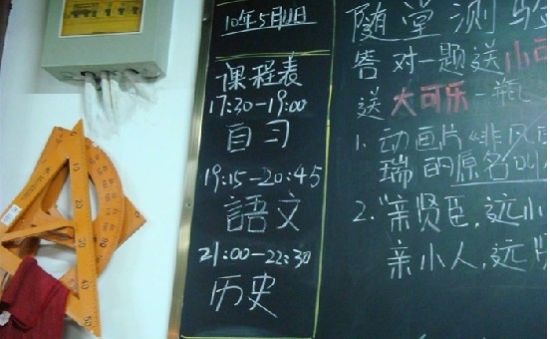 10年5月11日
课程表
17:30-19:00
自习
19:15-20:45
語文
21:00-22:30
历史
随堂测验
答对一题送小可
送大可乐一瓶
1. 动画片"非凡
瑞的原名叫
2."亲贤臣,远小
亲小人,远贤